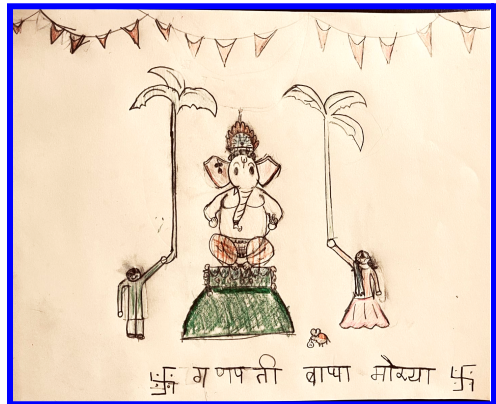 卐 गणपती बाप्पा मोरया 卐